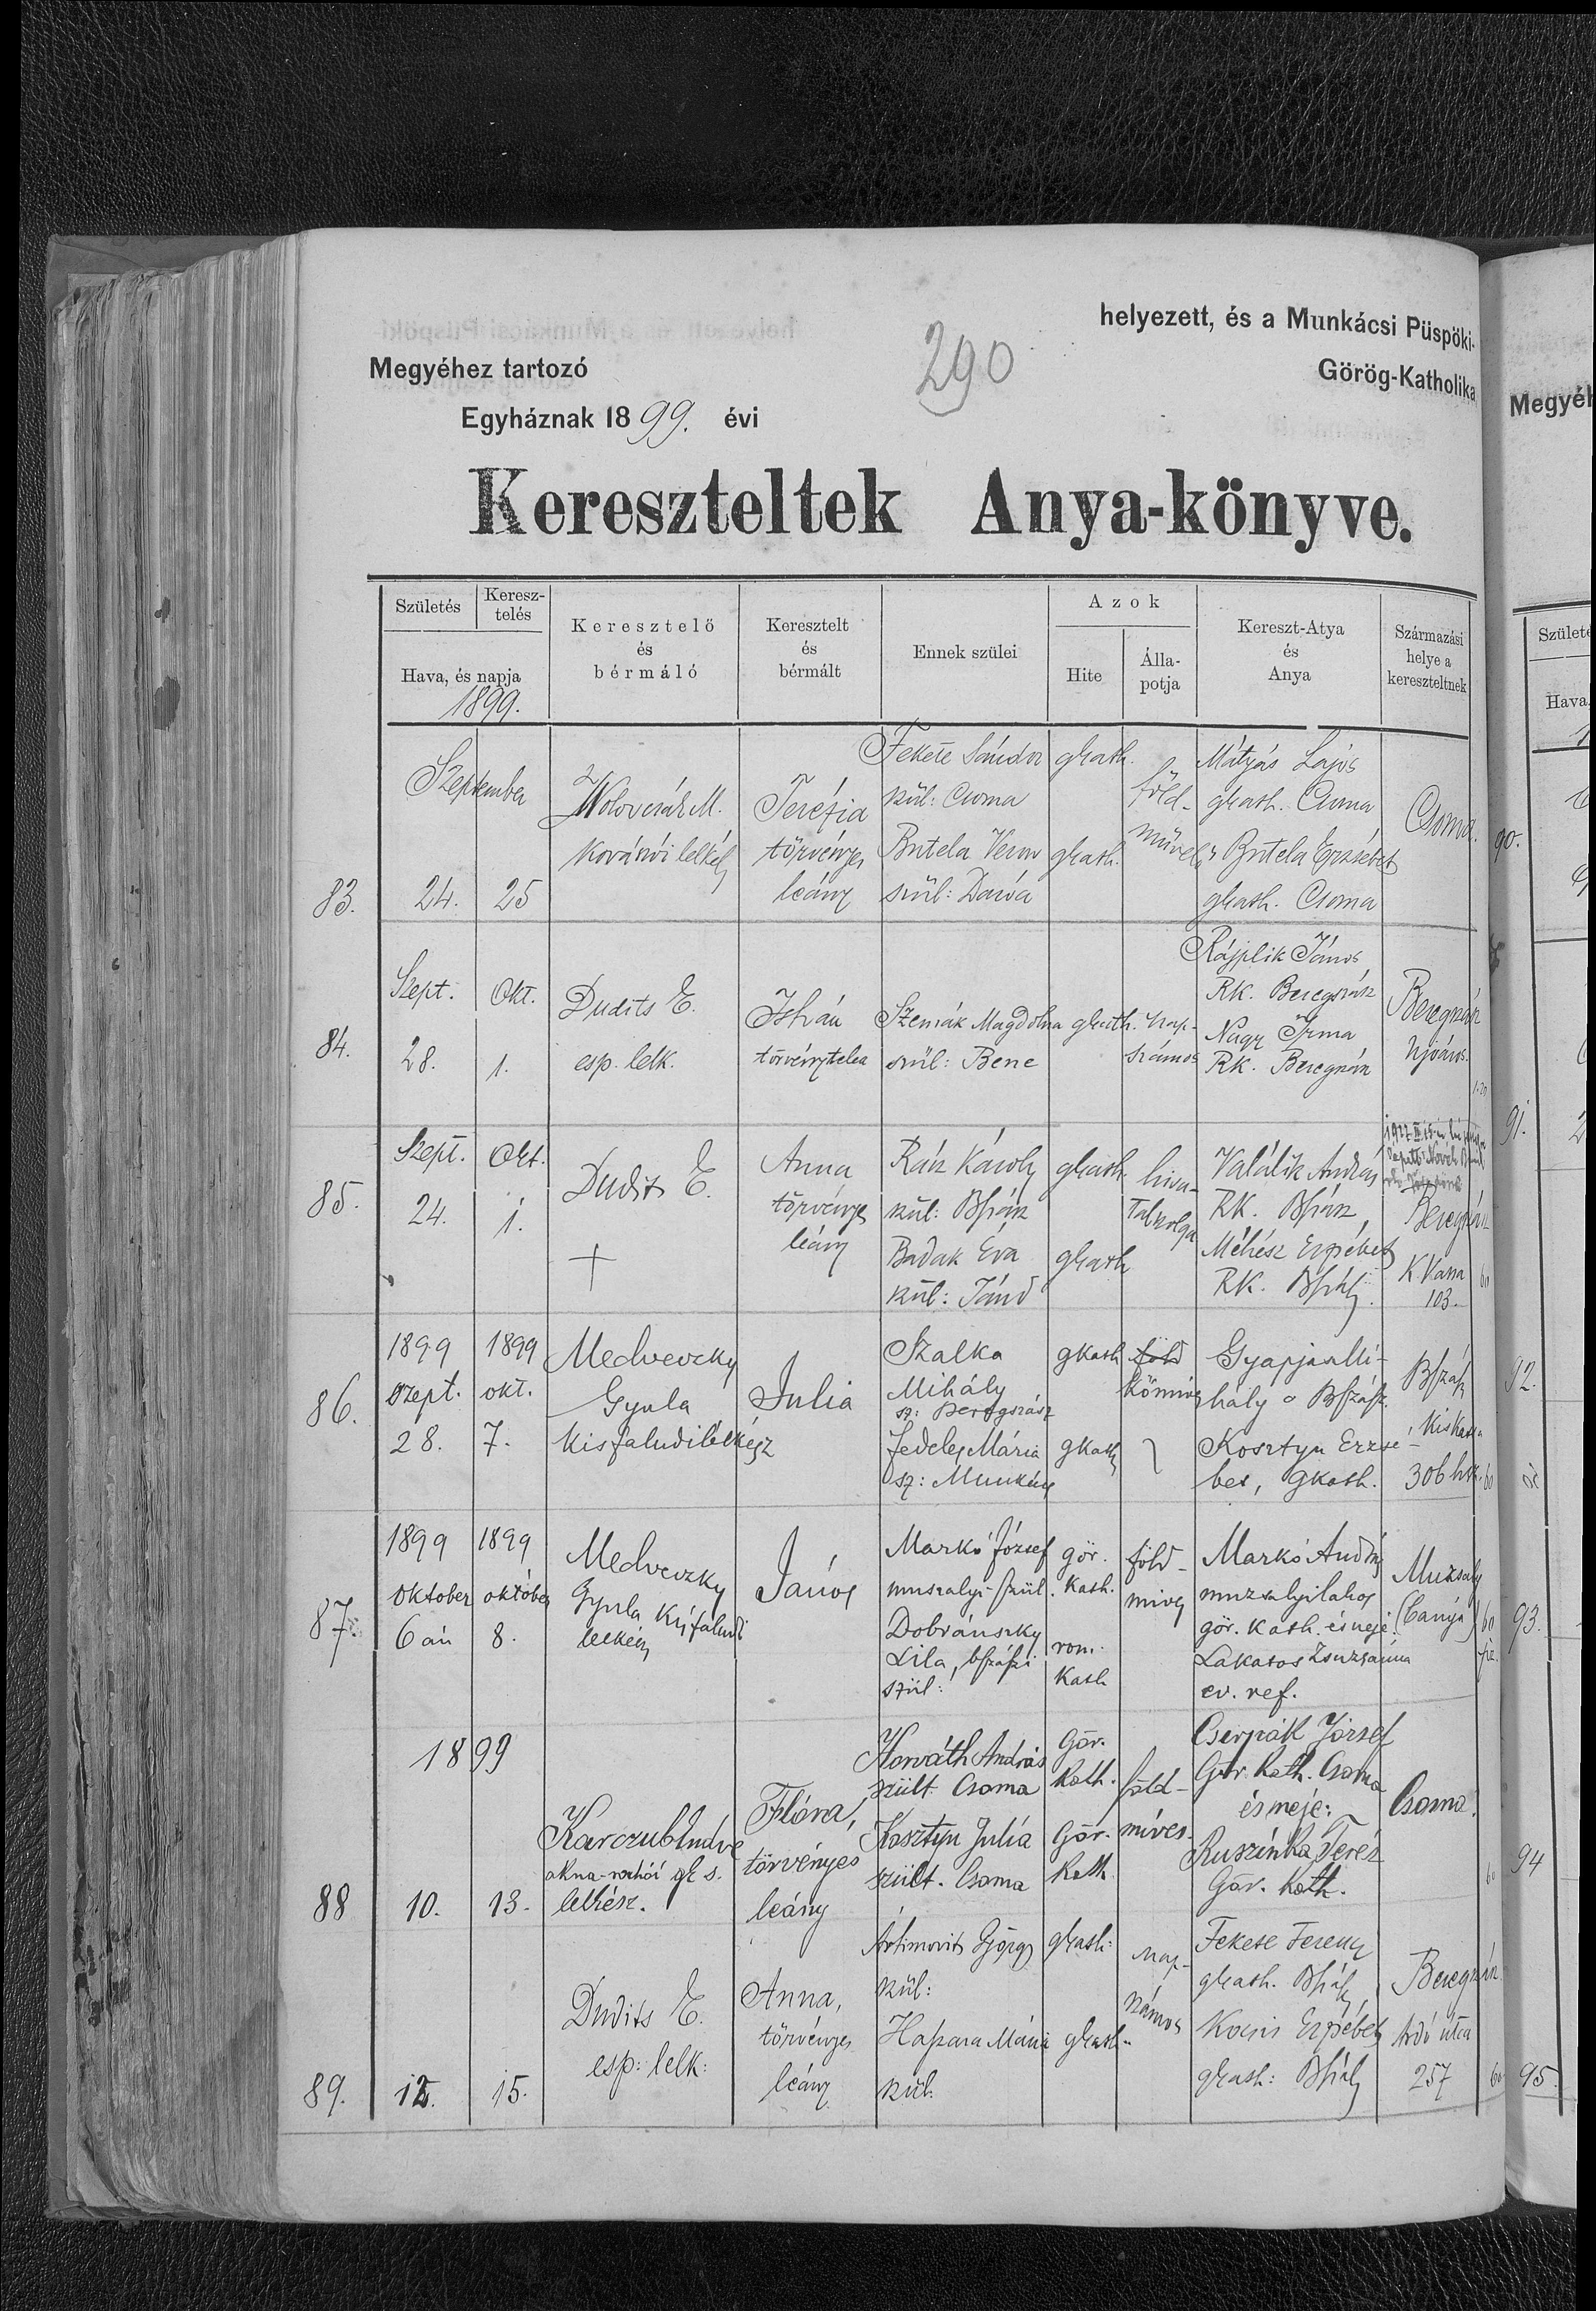 helyezett, és a Munkácsi Püspöki-
Megyéhez tartozó
290
Görög-Katholika
Egyháznak 1899. évi
Kereszteltek Anya-könyve.
Születés
Keresz-
telés
Hava, és napja
1899.
Keresztelő
és
bérmáló
Keresztelt
és
bérmált
Ennek szülei
Azok
Hite
Álla-
potja
Kereszt-Atya
és
Anya
Származási
helye a
kereszteltnek
83.
Szeptember
24.
25
M.
lelkész
Terézia
törvényes
leány
Fekete Sándor
szül: Csoma
Butela Veron
szül:
gkath.
gkath.
föld-
műveló
Mátyás Lajos
gkath. Csoma
s Butela Erzsébet
gkath. Csoma
Csoma.
84.
Szept.
28.
Okt.
1.
Dudits E.
esp. lelk.
István
törvénytelen
Magdolna
szül: Bene
gkath.
nap-
számos
Rájplik János
RK. Beregszász
Nagy Irma
RK. Beregszász
Beregszász
Ujváros.
1.20
85.
Szept.
24.
Okt.
1.
Dudits E.
Anna
törvényes
leány
Rácz Károly
szül: Bszász
Badak Éva
szül: Jánd
gkath.
gkath
hiva-
talszolga
András
RK. Bszász,
Méhész Erzsébet
RK.
Beregszász
K. Kassa
103.
60
86.
1899
szept.
28.
1899
okt.
7.
Medveczky
Gyula
kisfaludi lelkész
Julia
Szalka
Mihály
sz: Beregszász
Fedeles Mária
sz: Munkács
gkath
gkath
föld
kőmives
Gyapjas Mi-
hály
Kosztyu Erzsé-
bet, gkath.
Bszász
Kiskassa
306 hsz.
60
87.
1899
oktober
6 án
1899
október
8.
Medveczky
Gyula kisfaludi
lelkész
János
Markó József
muzsalyi szül.
Dobránszky
Lila, bszászi
szül:
gör.
kath.
rom.
kath
föld-
mives
Markó András
muzsalyi lakos
gör. kath. és neje
Lakatos Zsuzsánna
ev. ref.
Muzsaly
(banya)
60
88
1899
10.
13.
lelkész.
Flóra,
törvényes
leány
Horváth András
szült. Csoma
Kosztyu Julia
szült. Csoma
Gör.
Kath.
Gör.
Kath.
föld-
mives.
Cserpák József
Gör. Kath. Csoma
és neje:
Ruszinka Teréz
Gör. Kath.
Csoma.
60
89.
12.
15.
Dudits E.
esp: lelk:
Anna,
törvényes
leány
Artimovits György
szül:
Hapara Mária
szül:
gkath:
gkath.
nap-
számos
Fekete Ferencz
gkath.
Kocsis Erzsébet
gkath:
Beregszász
Ardó utca
257
60
Megyéh
Születé
Hava,
90.
91.
92.
93.
94
95.